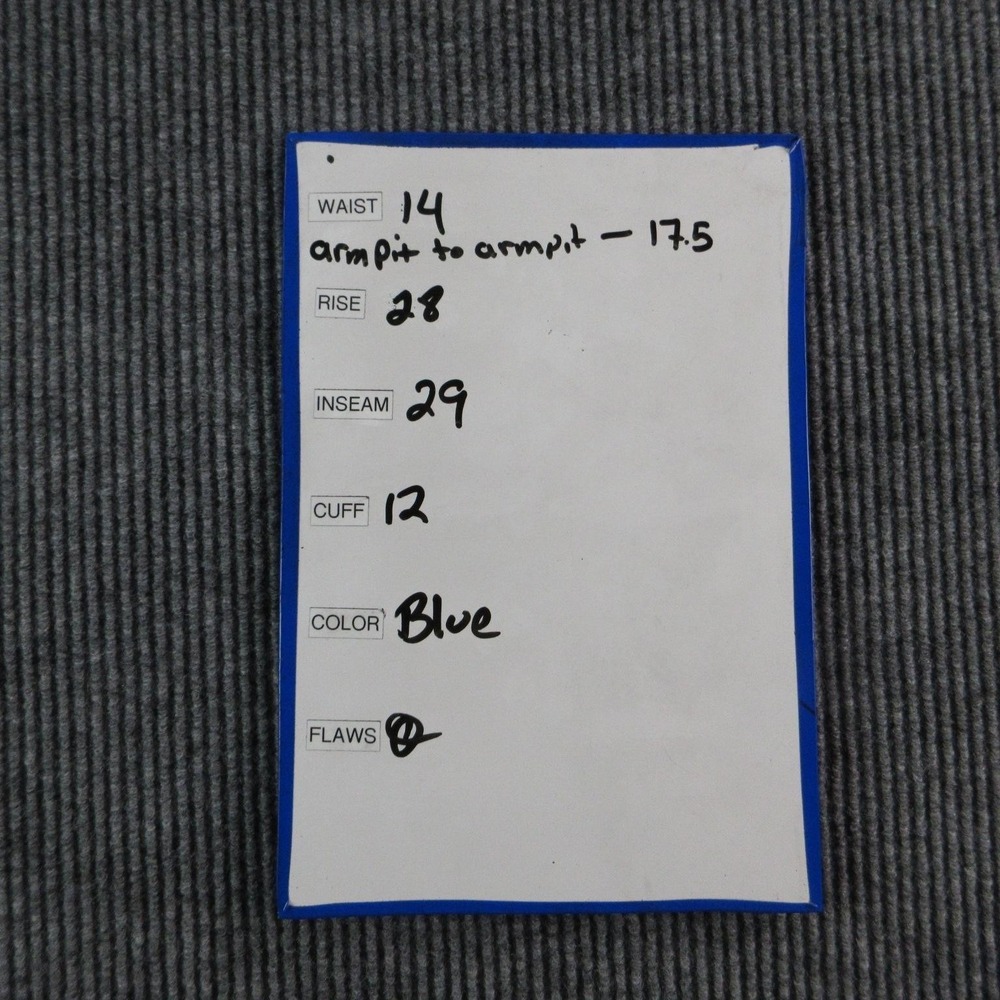 WAIST 14
armpit to armpit — 17.5
RISE 28
INSEAM 29
CUFF 12
COLOR Blue
FLAWS